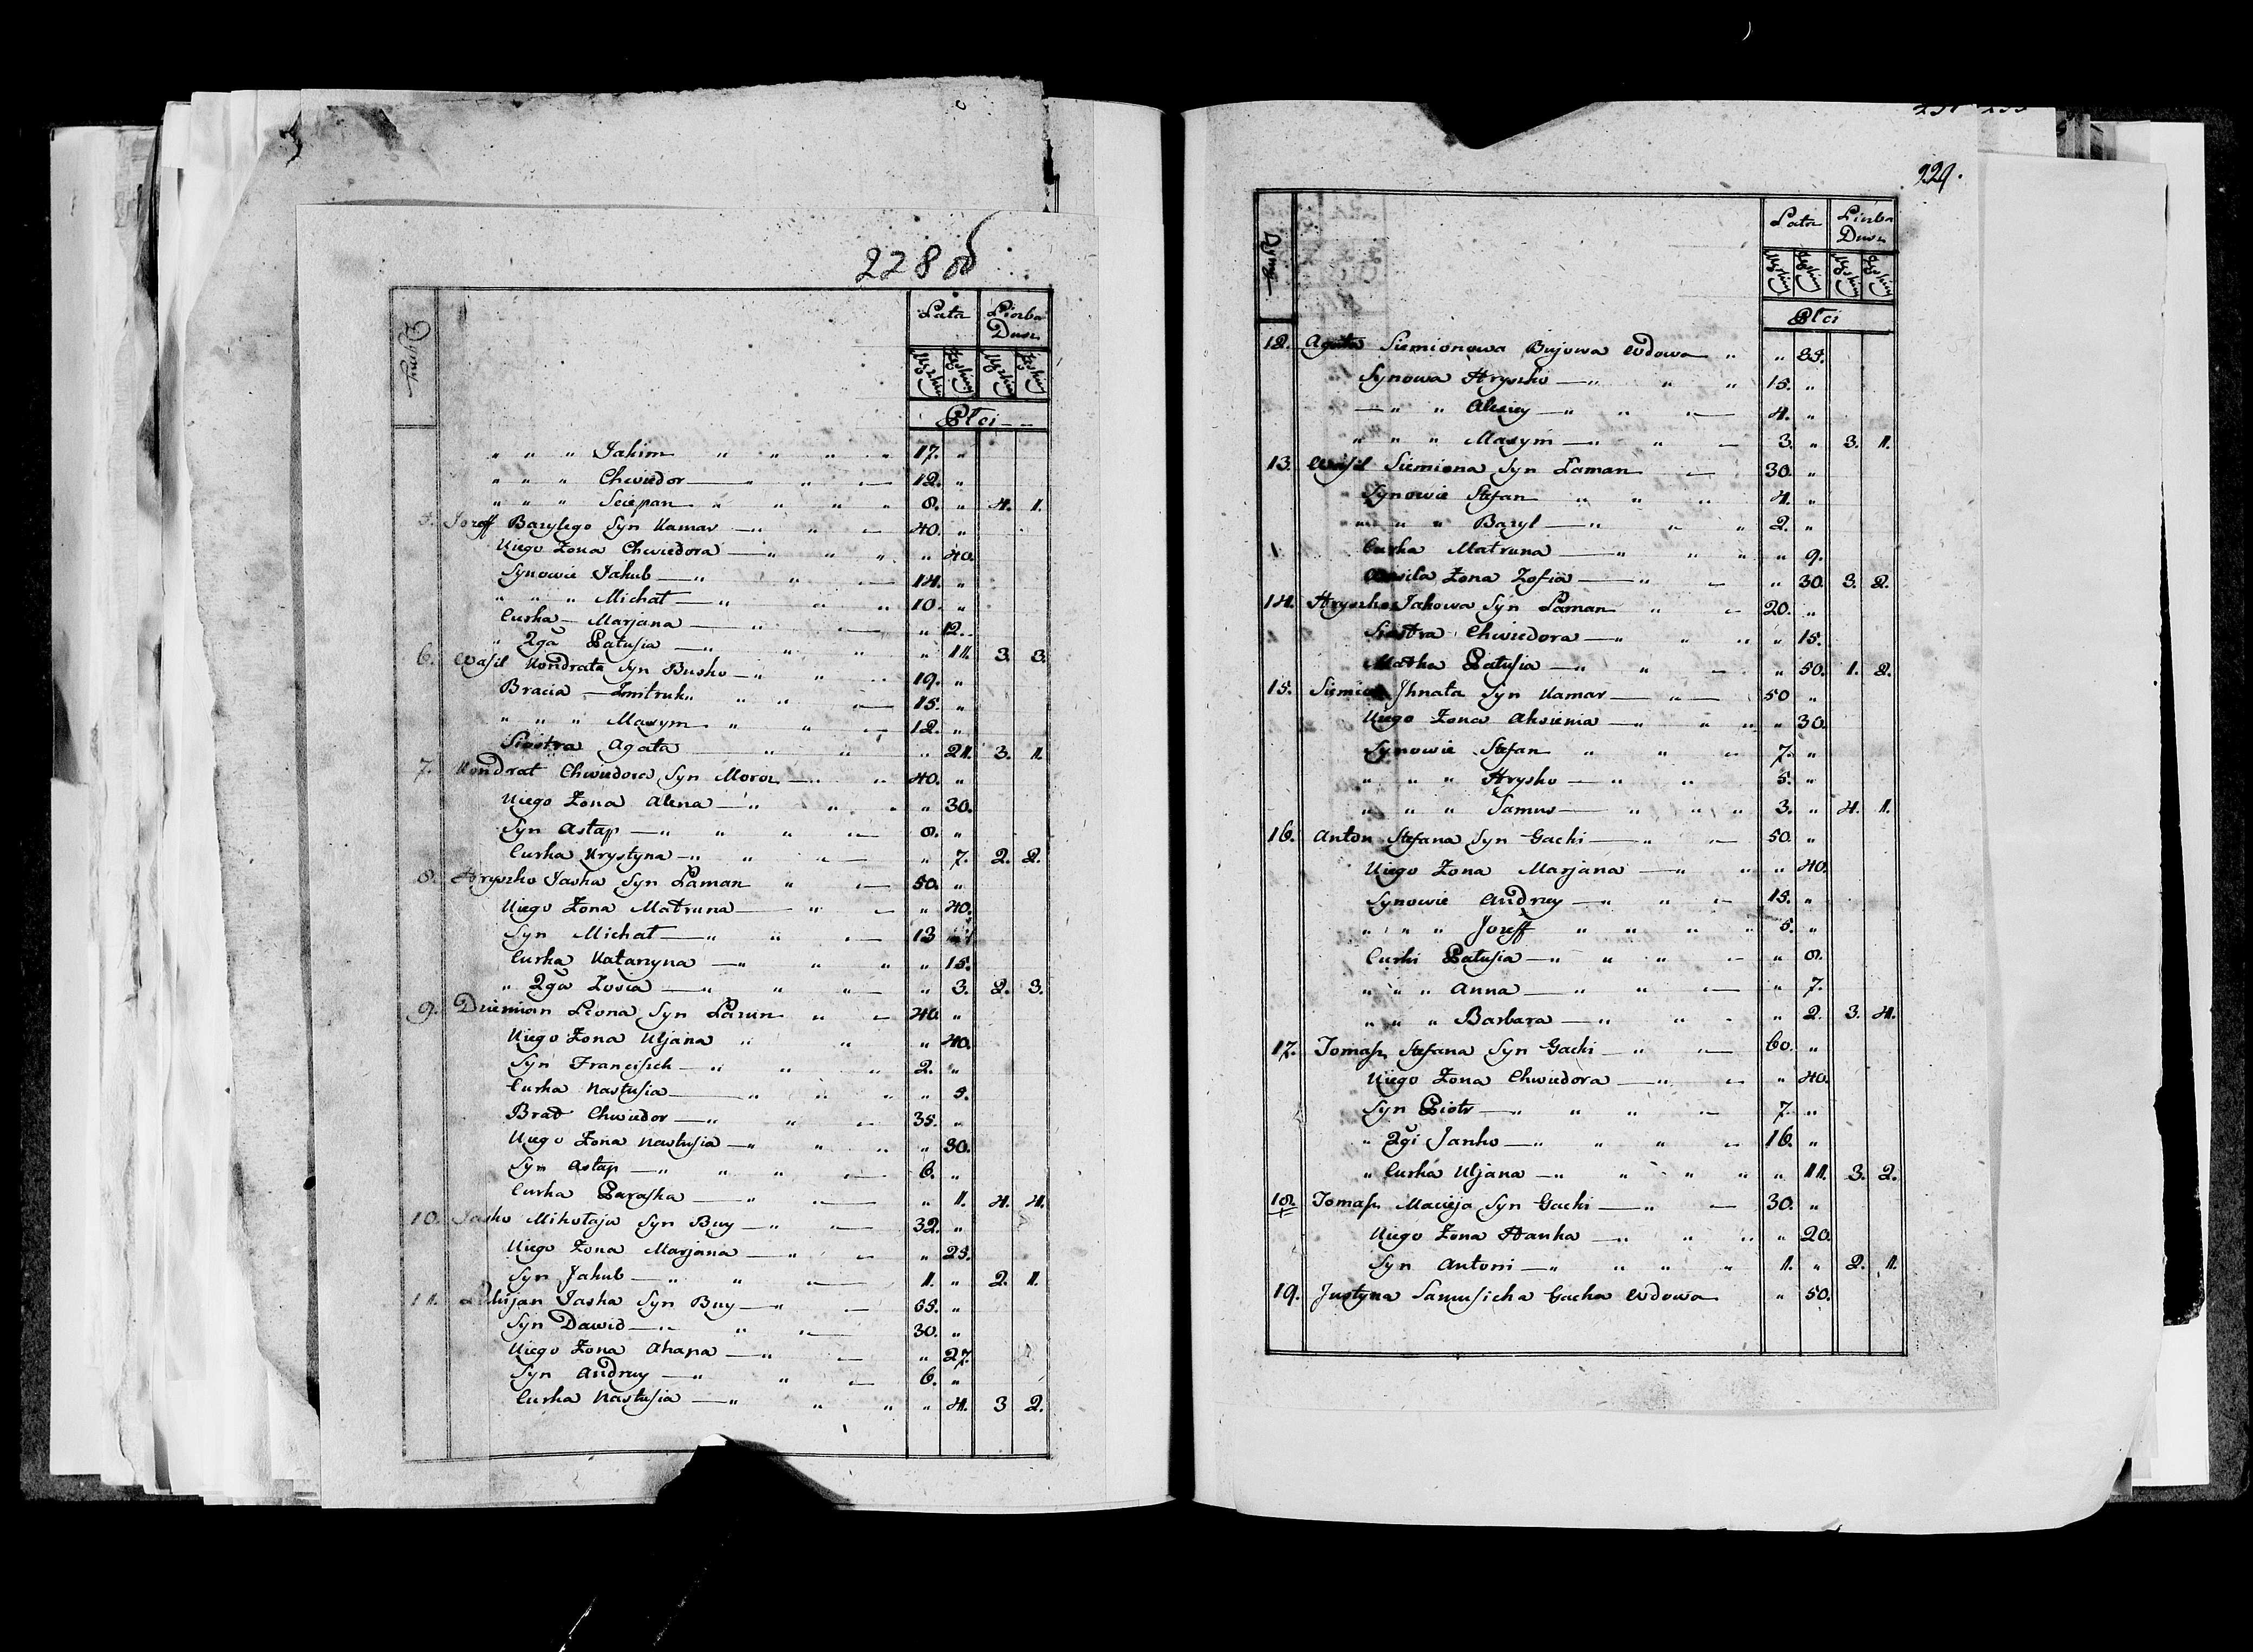 228 об
Dymy
Lata Liczba Dusz
Męzkiey Żeńskiey Męzkiey Żeńskiey
Płci
" " " Jakim " " " " 17. "
" " " Chwiedor — " " — 12. "
" " " Sciepan " " " " 8. " 4. 1.
5. Jozeff Bazylego Syn Kamar — " " — 40. "
Uiego Żona Chwiedora — " " " " 40.
Synowie Jakub — " " — 14. "
" " " Michał — " " " 10. "
Curka — Marjana — " — " 12.
" 2ga Patusia — " " " " 11. 3. 3.
6. Wasil Kondrata Syn Busko — " " " 19. "
Bracia — Zmitruk " " " — 15. "
" " " Maxym " " — 12. "
Siostra Agata — " " " 21. 3. 1.
7. Kondrat Chwiedora Syn Moroz — " " 40. "
Uiego Żona Alena — " " " " 30.
Syn Astap — " " " — 8. "
Curka Krystyna — " " — " 7. 2. 2.
8. Hryszko Jaska Syn Laman " — 50. "
Uiego Żona Matruna — " — " 40.
Syn Michał — " " — 13 "
Curka Katarzyna — " " " " 15.
" 2ga Zosia — " " — " 3. 2. 3.
9. Dziemian Leona Syn Larun " — 40. "
Uiego Żona Uljana " " " 40.
Syn Francisek — " " " 2. "
Curka Nastusia — " " " " 5.
Brat Chwiedor — " " — 35. "
Uiego Żona Nastusia — " " " " 30.
Syn Astap — " " " — 6. "
Curka Paraska — " — " 1. 4. 4.
10. Jasko Mikołaja Syn Buy — " — 32. "
Uiego Żona Marjana — " — " 25.
Syn Jakub — " " — 1. " 2. 1.
11. Łukjan Jaska Syn Buy — " — 65. "
Syn Dawid — " " — 30. "
Uiego Żona Ahapa — " — " 27.
Syn Andrey — " " — 6. "
Curka Nastusia — " " " " 4. 3 2.
229.
Dymy
Lata Liczba Dusz
Męzkiey Żeńskiey Męzkiey Żeńskiey
Płci
12. Agata Siemionowa Bujowa Wdowa " " 35.
Synowa Hryszko — " " " 15. "
— " " Alexiey — " " — 4. "
" " " Maxym — " " — 3. " 3. 1.
13. Wasil Siemiona Syn Laman — 30. "
Synowie Stefan " " " 4. "
" " " Bazyl — " " " 2. "
Curka Matruna — " " " " 9.
Wasila Żona Zofia — " — " 30. 3. 2.
14. Hryszko Jakowa Syn Laman " — 20. "
Siostra Chwiedora — " " " " 15.
Matka Patusia — " " — " 50. 1. 2.
15. Siemion Jhnata Syn Kamar — " — 50 "
Uiego Żona Aksienia — " " " " 30.
Synowie Stefan " " — 7. "
" " " Hrysko — " " 5. "
" " " Samus — " " " 3. " 4. 1.
16. Anton Stefana Syn Gacki — " — 50. "
Uiego Żona Marjana — " " " 40.
Synowie Andrey — " " — 15. "
" " " Jozeff " " " " 5. "
Curki Patusia — " " " — " 8.
" " " Anna — " " — " 7.
" " " Barbara — " " - " 2. 3. 4.
17. Tomasz Stefana Syn Gacki — " — 60. "
Uiego Żona Chwiedora — " — " 40.
Syn Piotr — " " " — 7. "
" 2gi Janko — " " " — 16. "
" Curka Uljana — " " " " " 11. 3. 2.
18. Tomasz Macieja Syn Gacki — " — 30. "
Uiego Żona Hanka — " " " " 20.
Syn Antoni — " " " " 1. " 2. 1.
19. Justyna Samusicha Gacka Wdowa " 50.